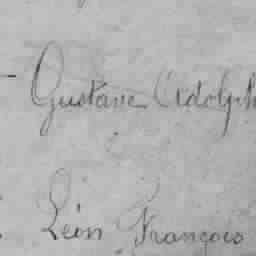 Gustave Adolph
Léon François